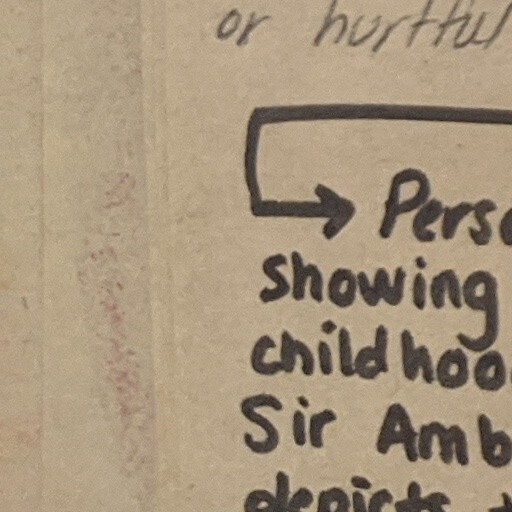 or hurtful
Perso
showing
childhoo
Sir Amb
depicts